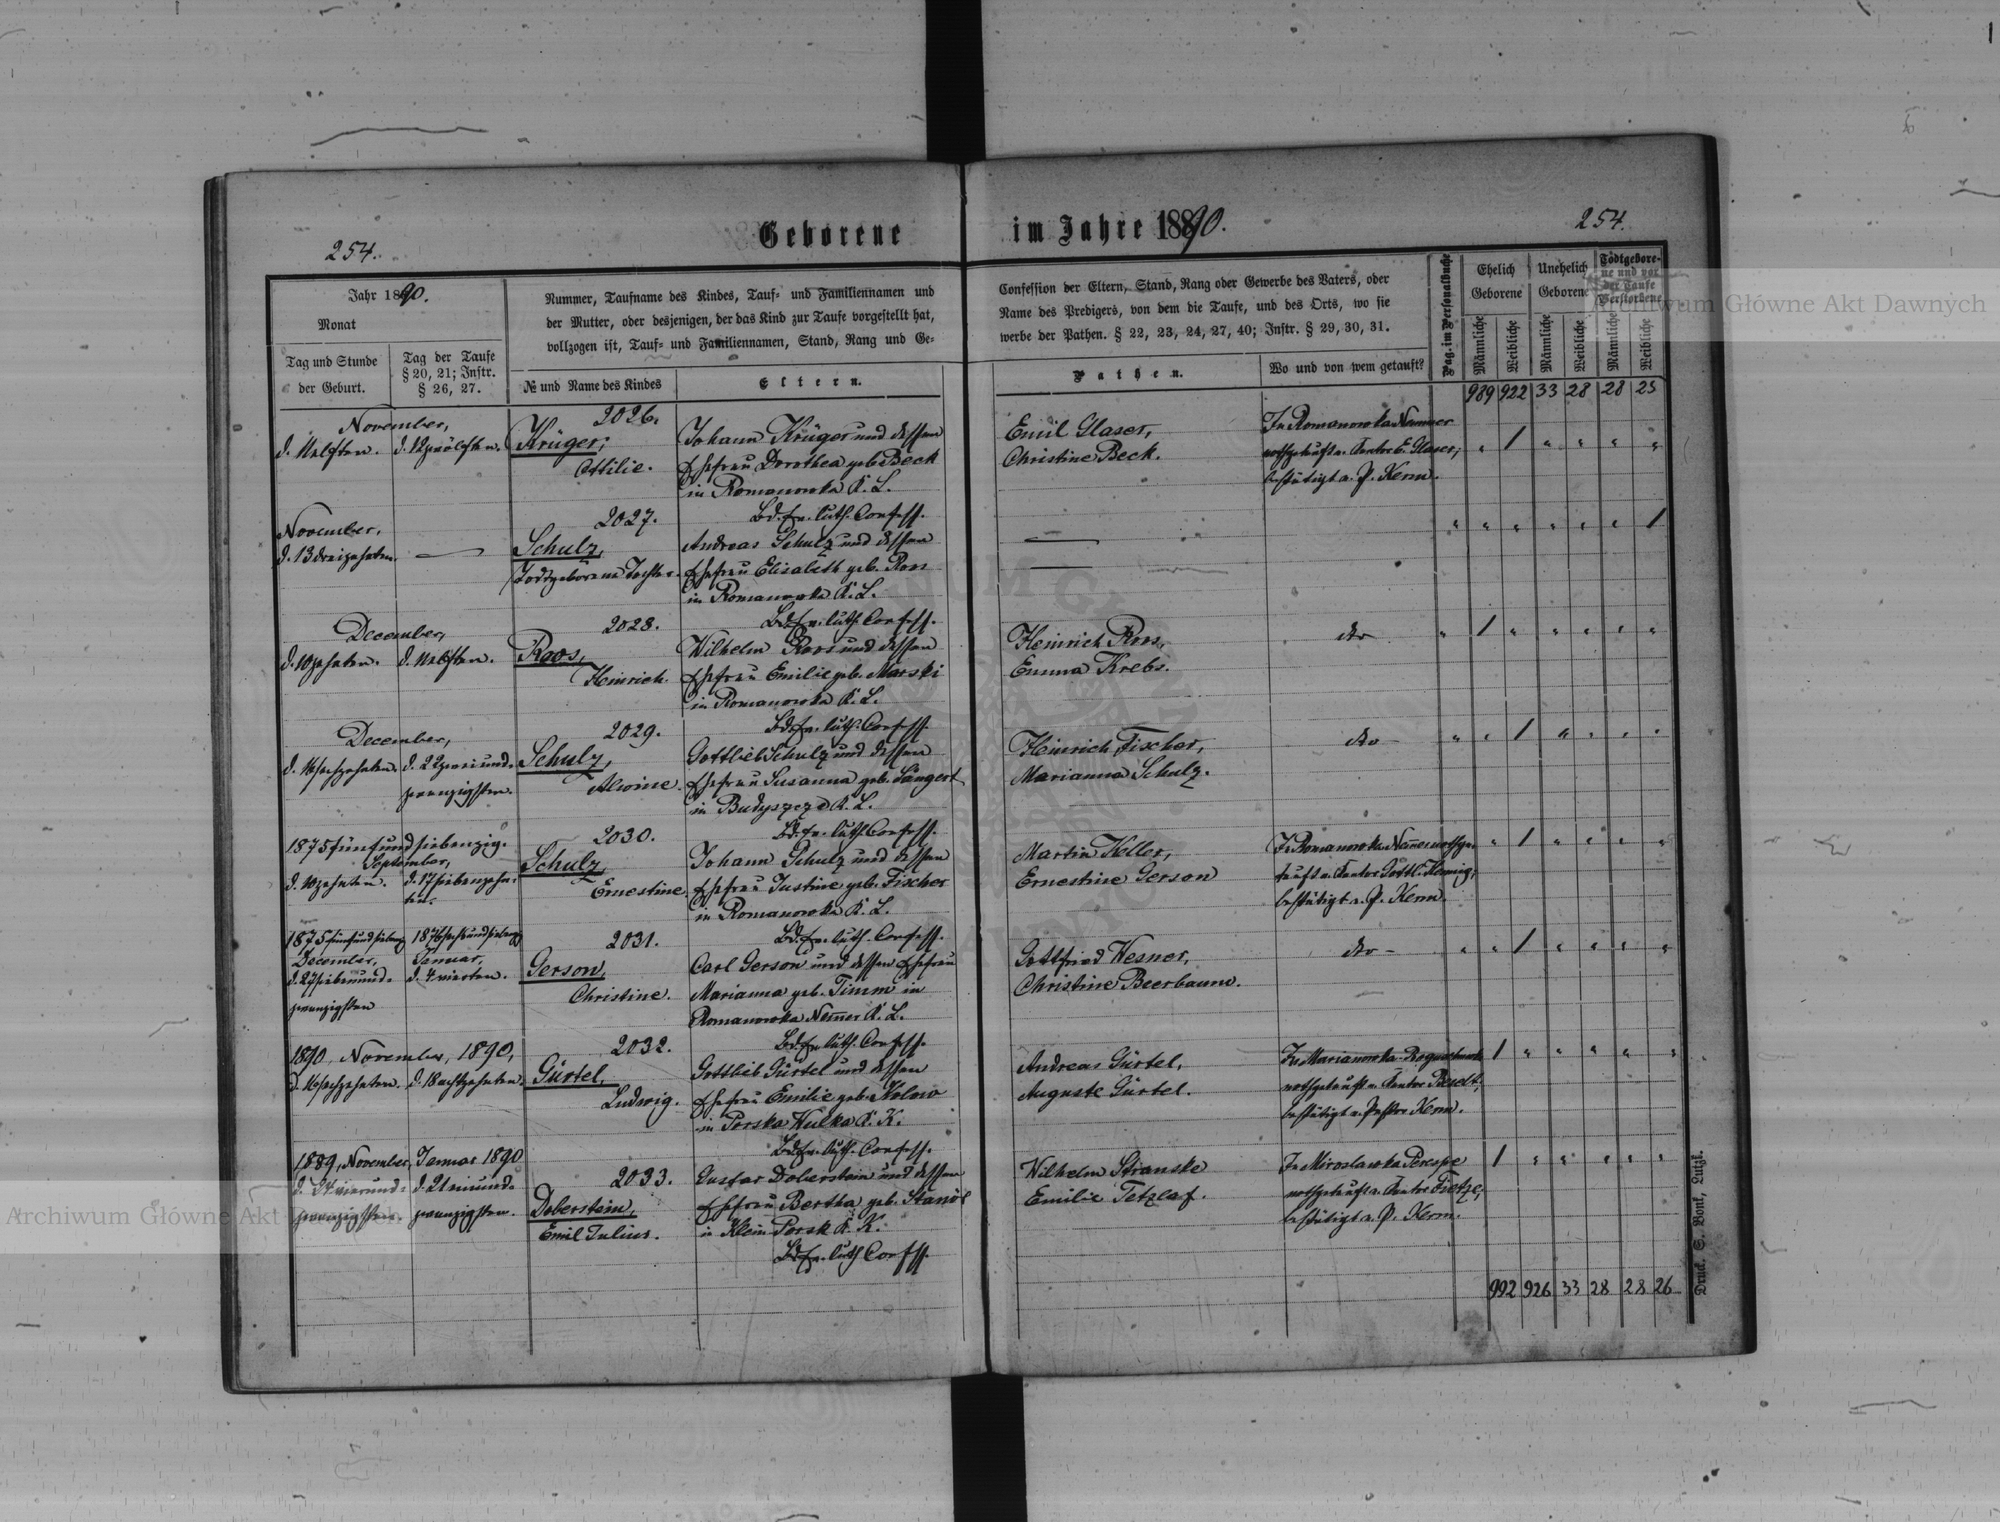 254.
Geborene
im Jahre 1890.
254.
Jahr 1890.
Monat
Tag und Stunde
der Geburt.
Tag der Taufe
§ 20, 21; Instr.
§ 26, 27.
Nummer, Taufname des Kindes, Tauf- und Familiennamen und
der Mutter, oder desjenigen, der das Kind zur Taufe vorgestellt hat,
vollzogen ist, Tauf- und Familiennamen, Stand, Rang und Ge-
№ und Name des Kindes
Eltern.
Confession der Eltern, Stand, Rang oder Gewerbe des Vaters, oder
Name des Predigers, von dem die Taufe, und des Orts, wo sie
werbe der Pathen. § 22, 23, 24, 27, 40; Instr. § 29, 30, 31.
Pathen.
Wo und von wem getauft?
Pag. im Personalbuche
Ehelich
Geborene
Unehelich
Geborene
Todtgebore-
ne und vor
der Taufe
Verstorbene
Männliche
Weibliche
Männliche
Weibliche
Männliche
Weibliche
989 922 33 28 28 25
November,
d. 11 elften. d. 12 zwölften.
2026.
Krüger,
Ottilie.
Johann Krüger und dessen
Ehefrau Dorothea geb. Beck
in Romanowka K. L.
Bd. ev. luth. Confess.
Emil Glaser,
Christine Beck.
In Romanowka Nemmer
nothgetauft v. Kantor E. Glaser;
bestätigt v. P. Kerm.
November,
d. 13 dreizehnten.
2027.
Schulz,
Todtgeborene Tochter.
Andreas Schulz und dessen
Ehefrau Elisabeth geb. Roos
in Romanowka K. L.
Bd. ev. luth. Confess.
December,
d. 10 zehnten. d. 11 elften.
2028.
Roos,
Heinrich.
Wilhelm Roos und dessen
Ehefrau Emilie geb. Marski
in Romanowka K. L.
Bd. ev. luth. Confess.
Heinrich Roos,
Emma Krebs.
dto
December,
d. 16 sechzehnten. d. 22 zwei und-
zwanzigsten.
2029.
Schulz,
Alwine.
Gottlieb Schulz und dessen
Ehefrau Susanna geb. Längert
in Budyszcze K. L.
Bd. ev. luth. Confess.
Heinrich Fischer,
Marianna Schulz.
dto
1875 fünf und siebenzig.
September,
d. 10 zehnten. d. 17 siebenzehn-
ten.
2030.
Schulz,
Ernestine.
Johann Schulz und dessen
Ehefrau Justine geb. Fischer
in Romanowka K. L.
Bd. ev. luth. Confess.
Martin Keller,
Ernestine Gerson
In Romanowka Nemer nothge-
tauft v. Kantor Gottl. Hennig;
bestätigt v. P. Kerm.
1875 fünf und siebenzig 1876 sechs und siebenzig
December, Januar,
d. 27 sieben und- d. 4 vierten.
zwanzigsten
2031.
Gerson,
Christine.
Carl Gerson und dessen Ehefrau
Marianna geb. Timm in
Romanowka Nemer K. L.
Bd. ev. luth. Confess.
Gottfried Wesner,
Christine Beerbaum.
dto
1890, November, 1890,
d. 16 sechzehnten. d. 18 achtzehnten.
2032.
Gürtel,
Ludwig.
Gottlieb Gürtel und dessen
Ehefrau Emilie geb. Kolow
in Porska Wulka K. K.
Bd. ev. luth. Confess.
Andreas Gürtel,
Auguste Gürtel.
nothgetauft v. Kantor
bestätigt v. Pastor Kerm.
1889, November, Januar 1890
d. 24 vier und- d. 21 ein und-
zwanzigsten. zwanzigsten.
2033.
Doberstein,
Emil Julius.
Gustav Doberstein und dessen
Ehefrau Bertha geb. Standt
in Klein Porsk K. K.
Bd. ev. luth. Confess.
Wilhelm Stranske
Emilie Tetzlaf.
In Miroslawka Perespe
nothgetauft v. Kantor Tietze;
bestätigt v. P. Kerm.
992 926 33 28 28 26
Druck. S. Bonk, Lutzk.
Archiwum Główne Akt Dawnych
Archiwum Główne Akt Dawnych